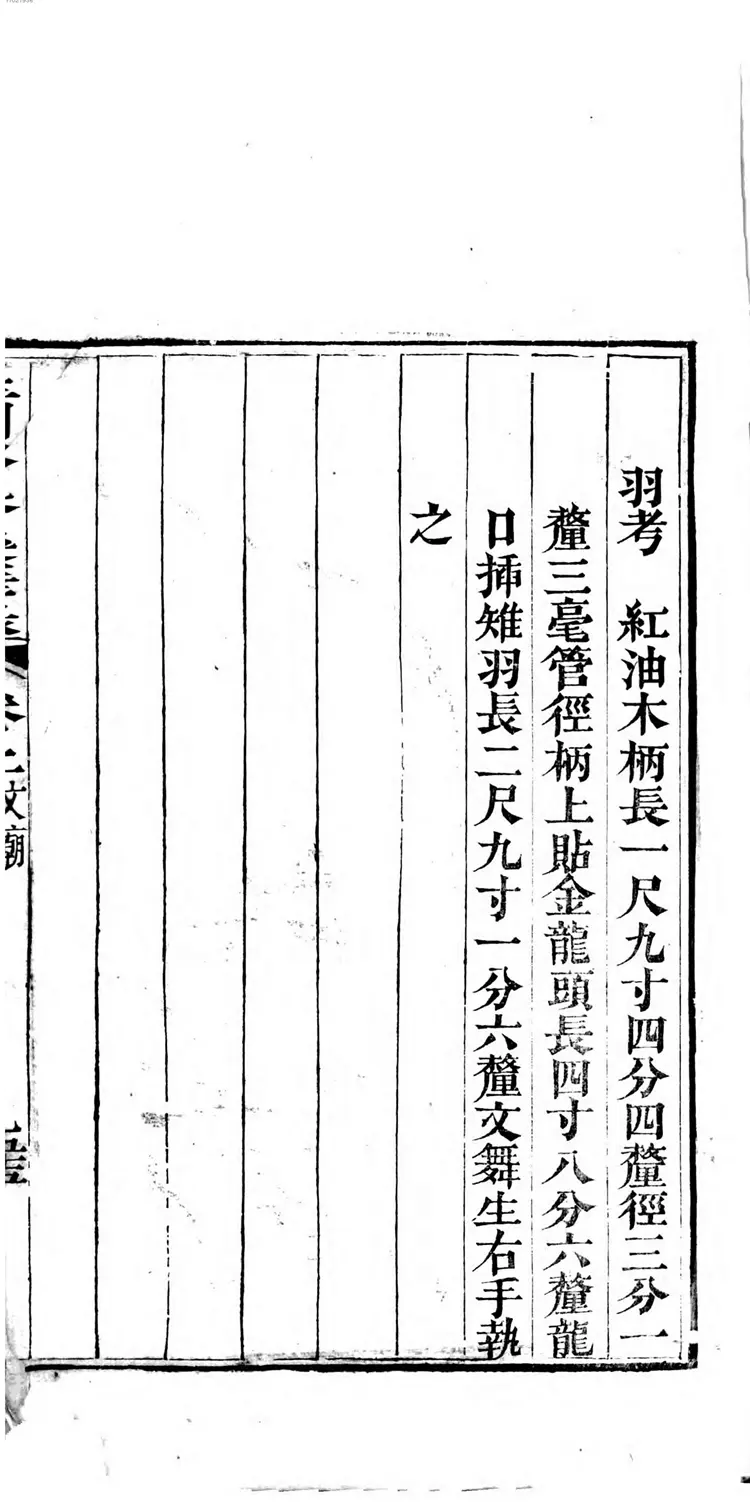 羽考　紅油木柄長一尺九寸四分四釐徑三分一
釐三毫管徑柄上貼金龍頭長四寸八分六釐龍
口揷雉羽長二尺九寸一分六釐文舞生右手執
之
文廟